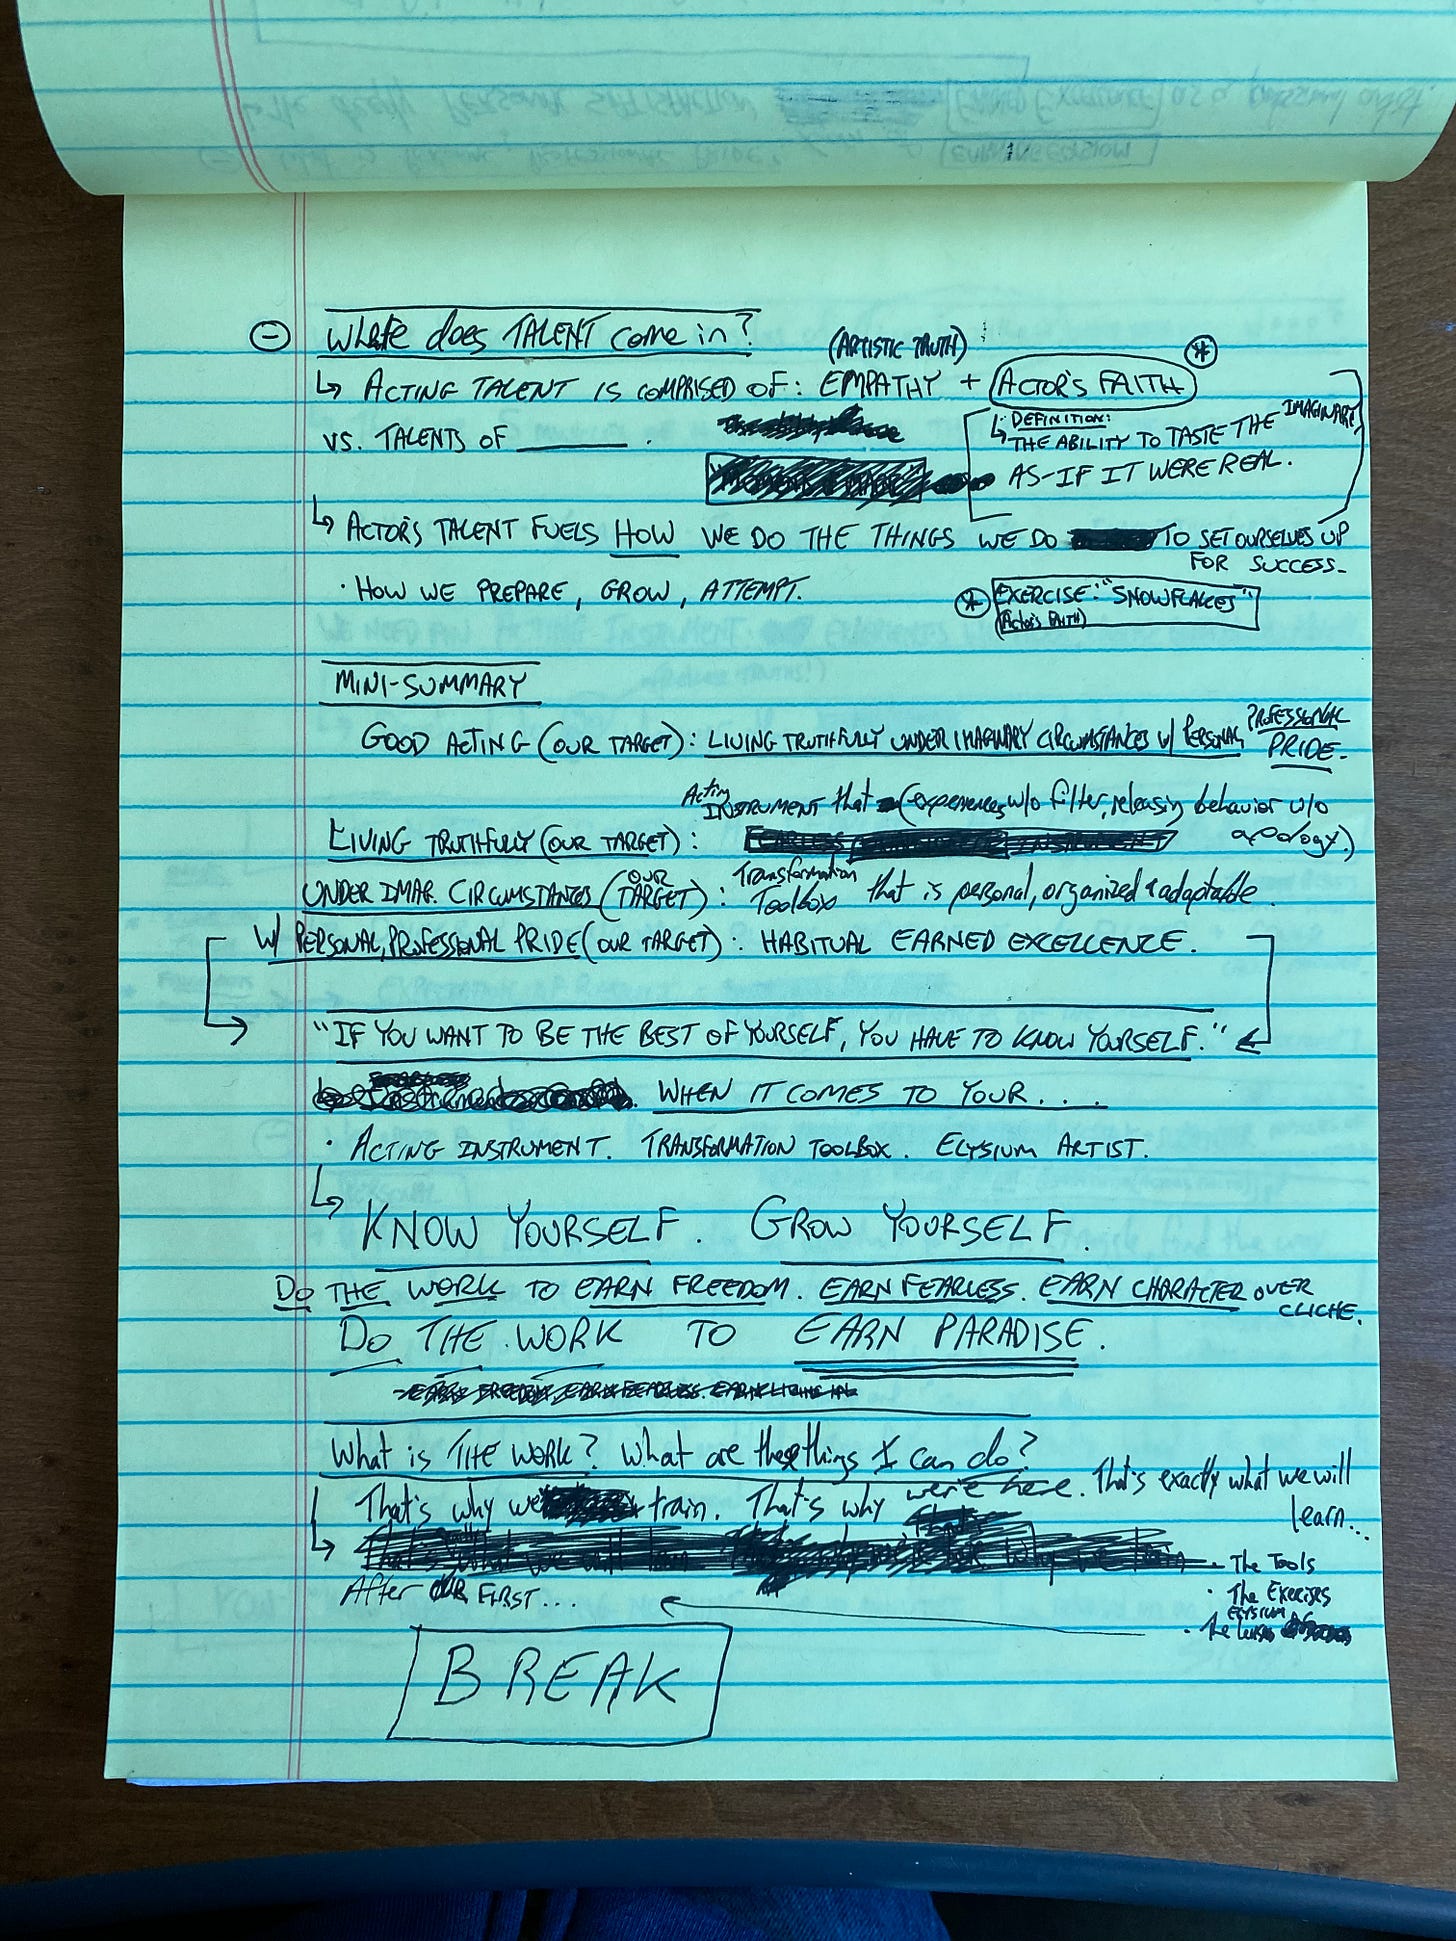 ⊖ Where does TALENT come in?
(ARTISTIC TRUTH)
↳ ACTING TALENT IS COMPRISED OF: EMPATHY + ACTOR'S FAITH *
VS. TALENTS OF ______.
↳ DEFINITION:
THE ABILITY TO TASTE THE IMAGINARY
AS-IF IT WERE REAL.
↳ ACTOR'S TALENT FUELS HOW WE DO THE THINGS WE DO TO SET OURSELVES UP
FOR SUCCESS.
· HOW WE PREPARE, GROW, ATTEMPT.
* EXERCISE: "SNOWFLAKES"
(Actor's FAITH)
MINI-SUMMARY
GOOD ACTING (OUR TARGET): LIVING TRUTHFULLY UNDER IMAGINARY CIRCUMSTANCES w/ PERSONAL, PROFESSIONAL
PRIDE.
Acting
INSTRUMENT that (experiences w/o filter, releasing behavior w/o
apology.)
LIVING TRUTHFULLY (OUR TARGET):
UNDER IMAG. CIRCUMSTANCES (OUR TARGET): Transformation Toolbox that is personal, organized & adaptable.
W/ PERSONAL, PROFESSIONAL PRIDE (OUR TARGET): HABITUAL EARNED EXCELLENCE.
"IF YOU WANT TO BE THE BEST OF YOURSELF, YOU HAVE TO KNOW YOURSELF."
WHEN IT COMES TO YOUR...
· ACTING INSTRUMENT. TRANSFORMATION TOOLBOX. ELYSIUM ARTIST.
↳ KNOW YOURSELF. GROW YOURSELF.
DO THE WORK TO EARN FREEDOM. EARN FEARLESS. EARN CHARACTER OVER
CLICHE.
DO THE WORK TO EARN PARADISE.
What is THE WORK? What are these things I can do?
↳ That's why we train. That's why we're here. That's exactly what we will
learn...
· The Tools
· The Exercises
· The ELYSIUM
After OUR FIRST...
BREAK